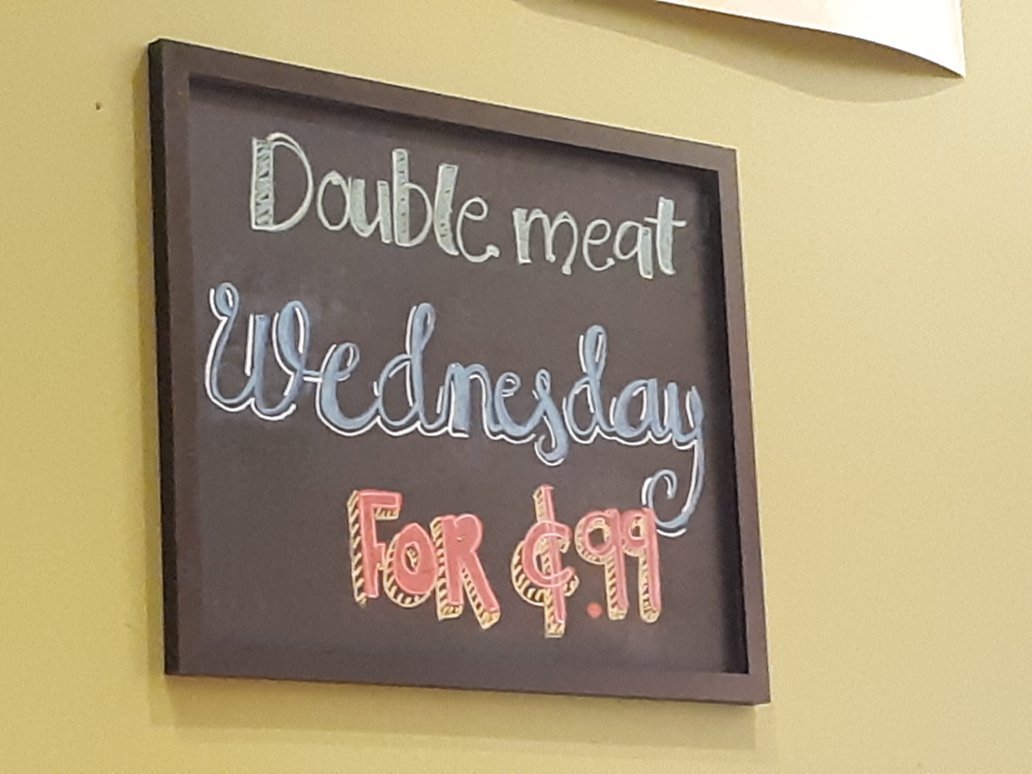 Double meat
Wednesday
FOR ¢.99